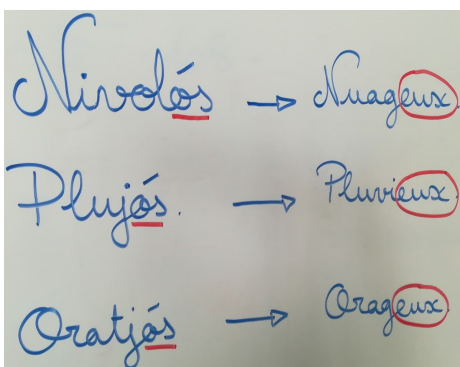 Nivolós → Nuageux
Plujós. → Pluvieux
Oratjós → Orageux